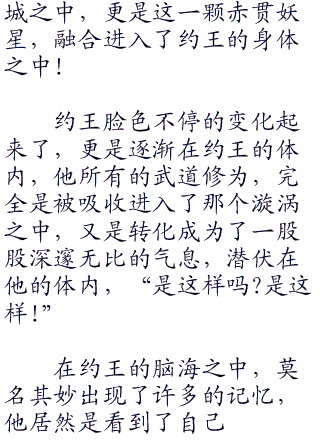 城之中，更是这一颗赤贯妖
星，融合进入了约王的身体
之中！
约王脸色不停的变化起
来了，更是逐渐在约王的体
内，他所有的武道修为，完
全是被吸收进入了那个漩涡
之中，又是转化成为了一股
股深邃无比的气息，潜伏在
他的体内，“是这样吗？是这
样！”
在约王的脑海之中，莫
名其妙出现了许多的记忆，
他居然是看到了自己